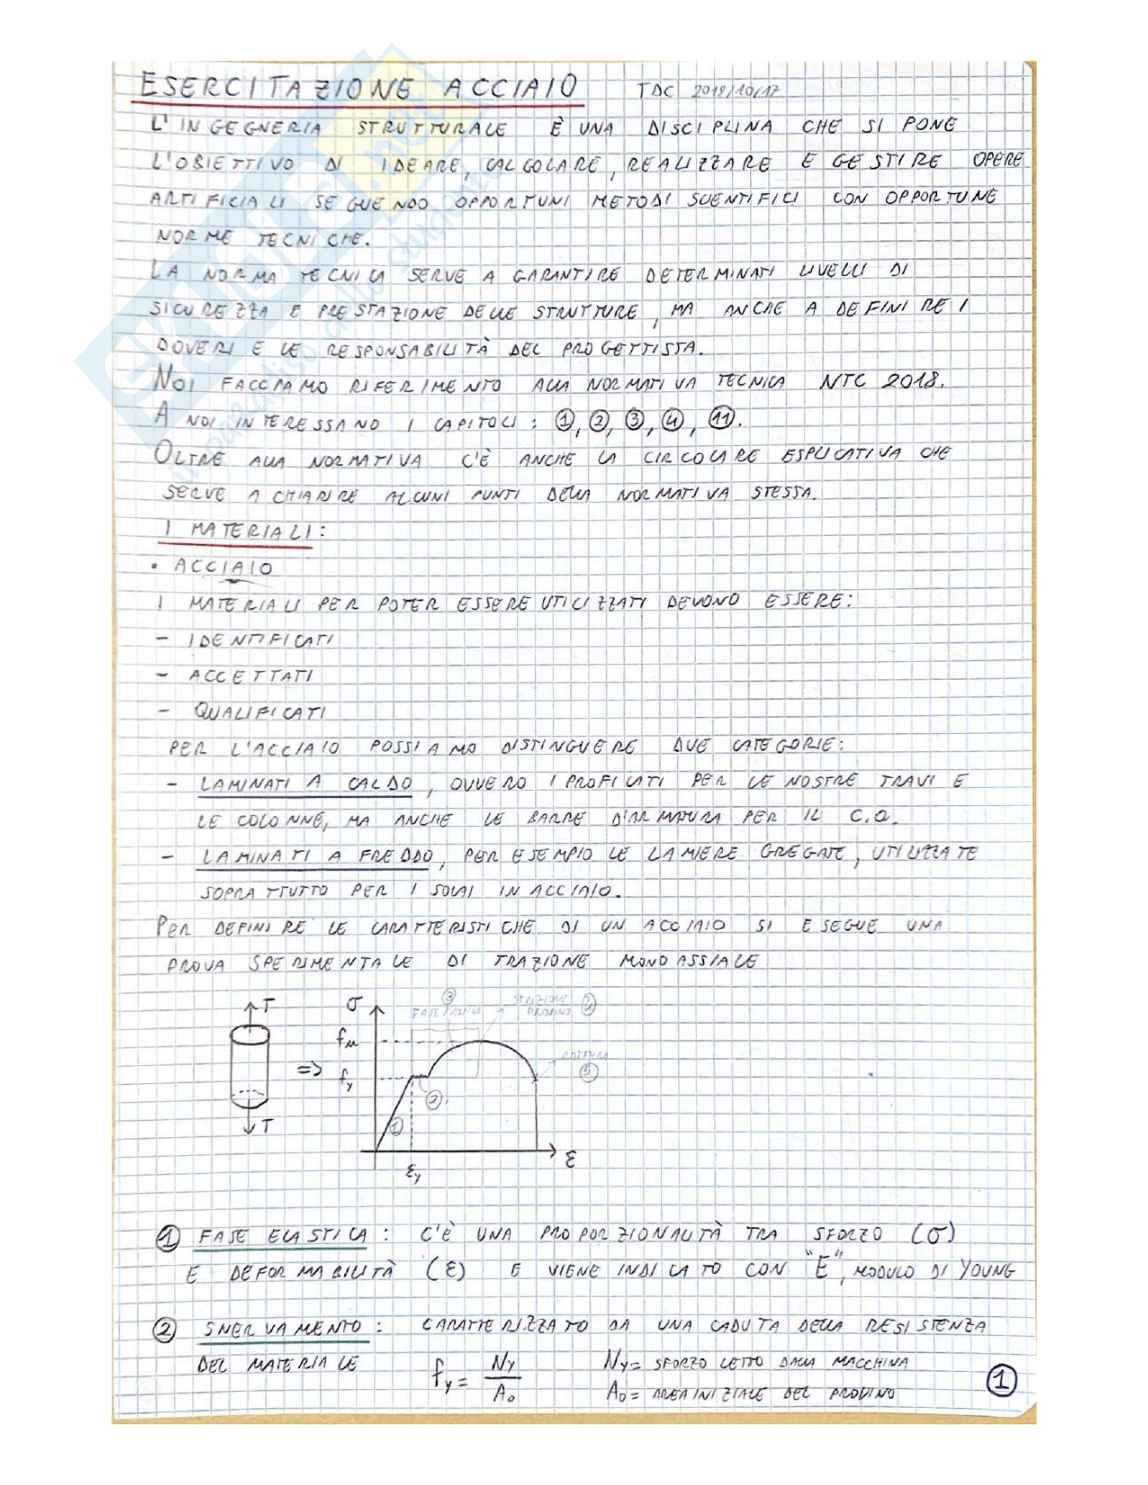 ESERCITAZIONE ACCIAIO TDC 2018/10/17
L'INGEGNERIA STRUTTURALE È UNA DISCIPLINA CHE SI PONE
L'OBIETTIVO DI IDEARE, CALCOLARE, REALIZZARE E GESTIRE OPERE
ARTIFICIALI SEGUENDO OPPORTUNI METODI SCIENTIFICI CON OPPORTUNE
NORME TECNICHE.
LA NORMA TECNICA SERVE A GARANTIRE DETERMINATI LIVELLI DI
SICUREZZA E PRESTAZIONE DELLE STRUTTURE, MA ANCHE A DEFINIRE I
DOVERI E LE RESPONSABILITÀ DEL PROGETTISTA.
NOI FACCIAMO RIFERIMENTO ALLA NORMATIVA TECNICA NTC 2018.
A NOI INTERESSANO I CAPITOLI: ①, ②, ③, ④, ⑪.
OLTRE ALLA NORMATIVA C'È ANCHE LA CIRCOLARE ESPLICATIVA CHE
SERVE A CHIARIRE ALCUNI PUNTI DELLA NORMATIVA STESSA.
I MATERIALI:
• ACCIAIO
I MATERIALI PER POTER ESSERE UTILIZZATI DEVONO ESSERE:
- IDENTIFICATI
- ACCETTATI
- QUALIFICATI
PER L'ACCIAIO POSSIAMO DISTINGUERE DUE CATEGORIE:
- LAMINATI A CALDO, OVVERO I PROFILATI PER LE NOSTRE TRAVI E
LE COLONNE, MA ANCHE LE BARRE D'ARMATURA PER IL C.A.
- LAMINATI A FREDDO, PER ESEMPIO LE LAMIERE GREGATE, UTILIZZATE
SOPRATTUTTO PER I SOLAI IN ACCIAIO.
PER DEFINIRE LE CARATTERISTICHE DI UN ACCIAIO SI ESEGUE UNA
PROVA SPERIMENTALE DI TRAZIONE MONOASSIALE
T
⇒
T
σ
fu
fy
③
④
⑤
②
①
εy
ε
① FASE ELASTICA: C'È UNA PROPORZIONALITÀ TRA SFORZO (σ)
E DEFORMABILITÀ (ε) E VIENE INDICATO CON "E", MODULO DI YOUNG
② SNERVAMENTO: CARATTERIZZATO DA UNA CADUTA DELLA RESISTENZA
DEL MATERIALE fy = Ny / A₀ Ny = SFORZO LETTO DALLA MACCHINA
A₀ = AREA INIZIALE DEL PROVINO
①